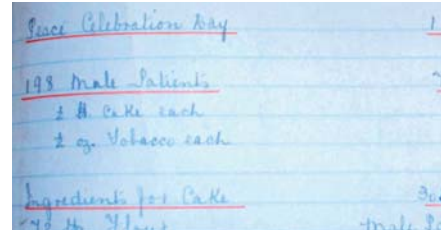 Peace Celebration Day 1
198 Male Patients
½ lb. Cake each
½ oz. Tobacco each
Ingredients for Cake 30
lb. Flour Male